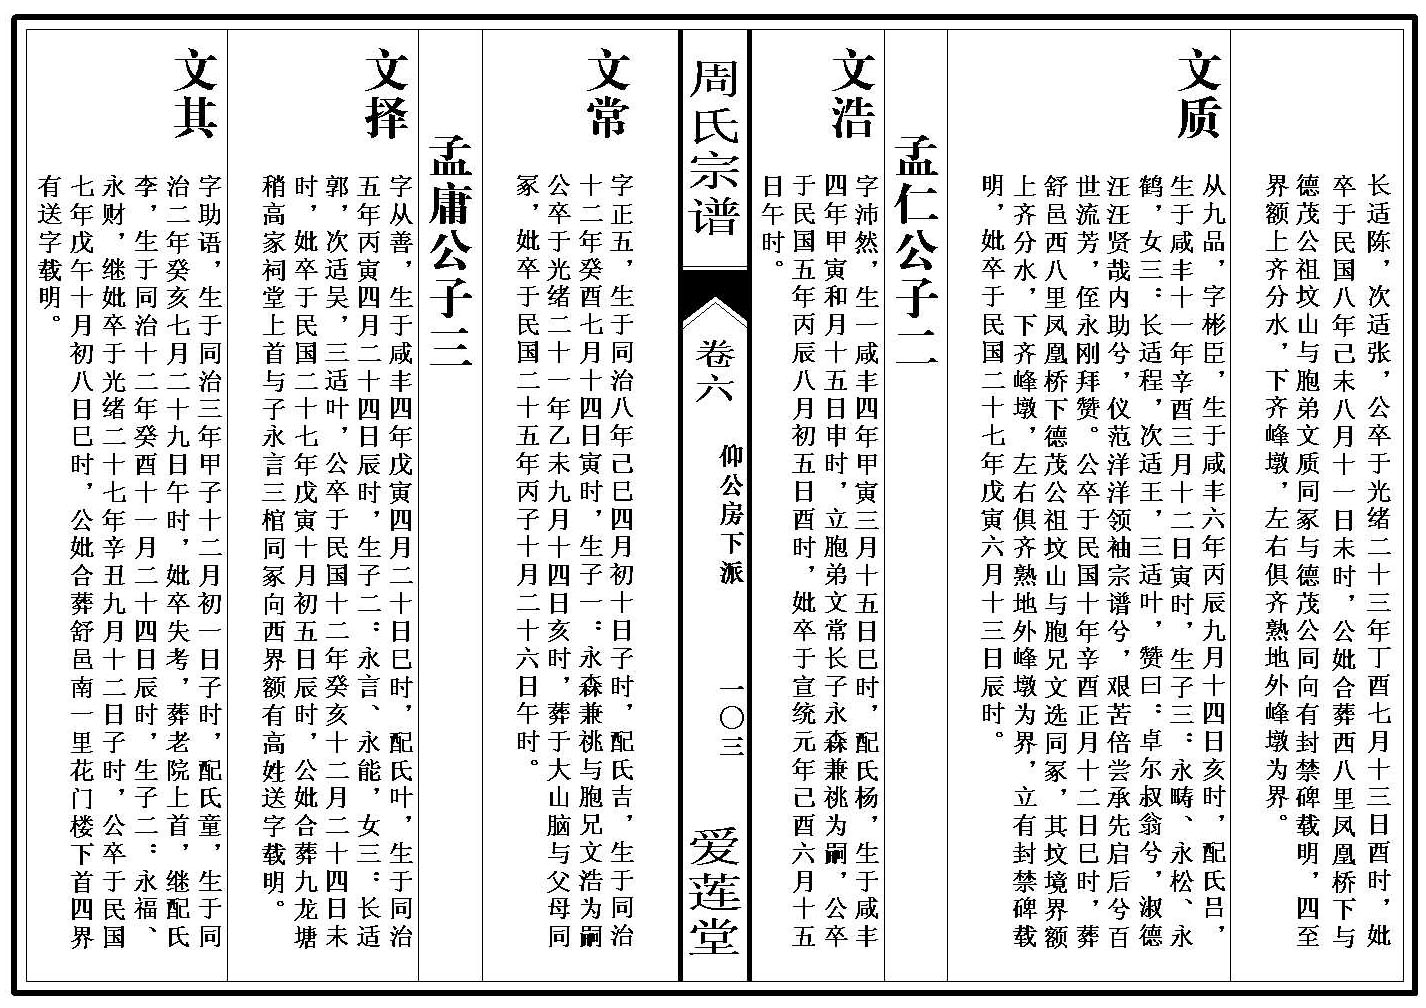 长适陈，次适张，公卒于光绪二十三年丁酉七月十三日酉时，妣
卒于民国八年己未八月十一日未时，公妣合葬西八里凤凰桥下与
德茂公祖坟山与胞弟文质同冢与德茂公同向有封禁碑载明，四至
界额上齐分水，下齐峰墩，左右俱齐熟地外峰墩为界。
文质
从九品，字彬臣，生于咸丰六年丙辰九月十四日亥时，配氏吕，
生于咸丰十一年辛酉三月十二日寅时，生子三：永畴、永松、永
鹤，女三：长适程，次适王，三适叶，赞曰：卓尔叔翁兮，淑德
汪汪贤哉内助兮，仪范洋洋领袖宗谱兮，艰苦倍尝承先启后兮百
世流芳，侄永刚拜赞。公卒于民国十年辛酉正月十二日巳时，葬
舒邑西八里凤凰桥下德茂公祖坟山与胞兄文选同冢，其坟境界额
上齐分水，下齐峰墩，左右俱齐熟地外峰墩为界，立有封禁碑载
明，妣卒于民国二十七年戊寅六月十三日辰时。
孟仁公子二
文浩
字沛然，生一咸丰四年甲寅三月十五日巳时，配氏杨，生于咸丰
四年甲寅和月十五日申时，立胞弟文常长子永森兼祧为嗣，公卒
于民国五年丙辰八月初五日酉时，妣卒于宣统元年己酉六月十五
日午时。
周氏宗谱
卷六
仰公房下派
一〇三
爱莲堂
文常
字正五，生于同治八年己巳四月初十日子时，配氏吉，生于同治
十二年癸酉七月十四日寅时，生子一：永森兼祧与胞兄文浩为嗣
公卒于光绪二十一年乙未九月十四日亥时，葬于大山脑与父母同
冢，妣卒于民国二十五年丙子十月二十六日午时。
孟庸公子三
文择
字从善，生于咸丰四年戊寅四月二十日巳时，配氏叶，生于同治
五年丙寅四月二十四日辰时，生子二：永言、永能，女三：长适
郭，次适吴，三适叶，公卒于民国十二年癸亥十二月二十四日未
时，妣卒于民国二十七年戊寅十月初五日辰时，公妣合葬九龙塘
稍高家祠堂上首与子永言三棺同冢向西界额有高姓送字载明。
文其
字助语，生于同治三年甲子十二月初一日子时，配氏童，生于同
治二年癸亥七月二十九日午时，妣卒失考，葬老院上首，继配氏
李，生于同治十二年癸酉十一月二十四日辰时，生子二：永福、
永财，继妣卒于光绪二十七年辛丑九月十二日子时，公卒于民国
七年戊午十月初八日巳时，公妣合葬舒邑南一里花门楼下首四界
有送字载明。